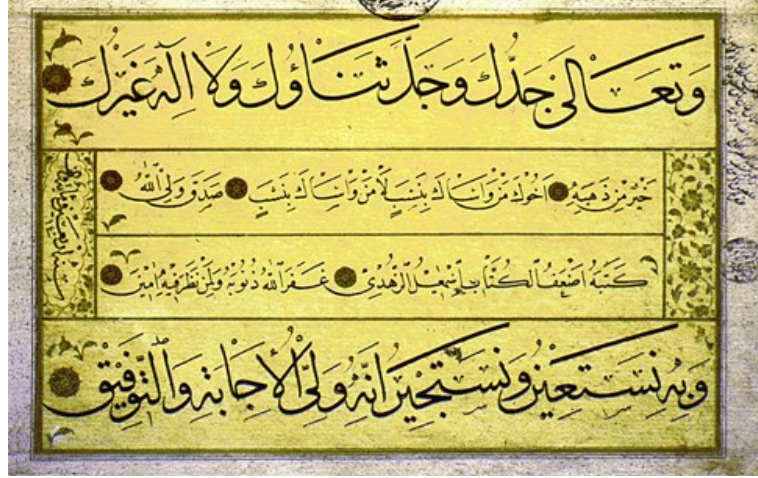 وَتَعَالىٰ جَدُّكَ وَجَلَّ ثَنَاؤُكَ وَلَا اِلٰهَ غَيْرُكَ
خَيْرٌ مِنْ ذَهَبِهِ اَخُوكَ مَنْ وَاسَاكَ بِنَشَبٍ لَا مَنْ وَاسَاكَ بِنَسَبٍ صَدَقَ وَلِيُّ اللهِ
كَتَبَهُ اَضْعَفُ الكُتَّابِ اِسْمٰعِيلُ الزُّهْدِي غَفَرَ اللهُ ذُنُوبَهُ وَلِمَنْ نَظَرَ فِيهِ اٰمِينَ
وَبِهِ نَسْتَعِينُ وَنَسْتَجِيرُ اِنَّهُ وَلِيُّ الْاِجَابَةِ وَالتَّوْفِيقِ